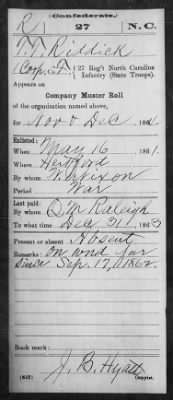 (Confederate.)
R 27 N.C.
T. T. Riddick
Corp, Co. F, 27 Reg't North Carolina
Infantry (State Troops).
Appears on
Company Muster Roll
of the organization named above,
for Nov & Dec, 1864.
Enlisted:
When May 16, 1861.
Where Hertford
By whom W. Nixon
Period War
Last paid:
By whom Q M Raleigh
To what time Dec 31, 1863
Present or absent Absent
Remarks: On wnd fur
since Sep. 17, 1862.
Book mark:
J. B. Hyatt
(642) Copyist.